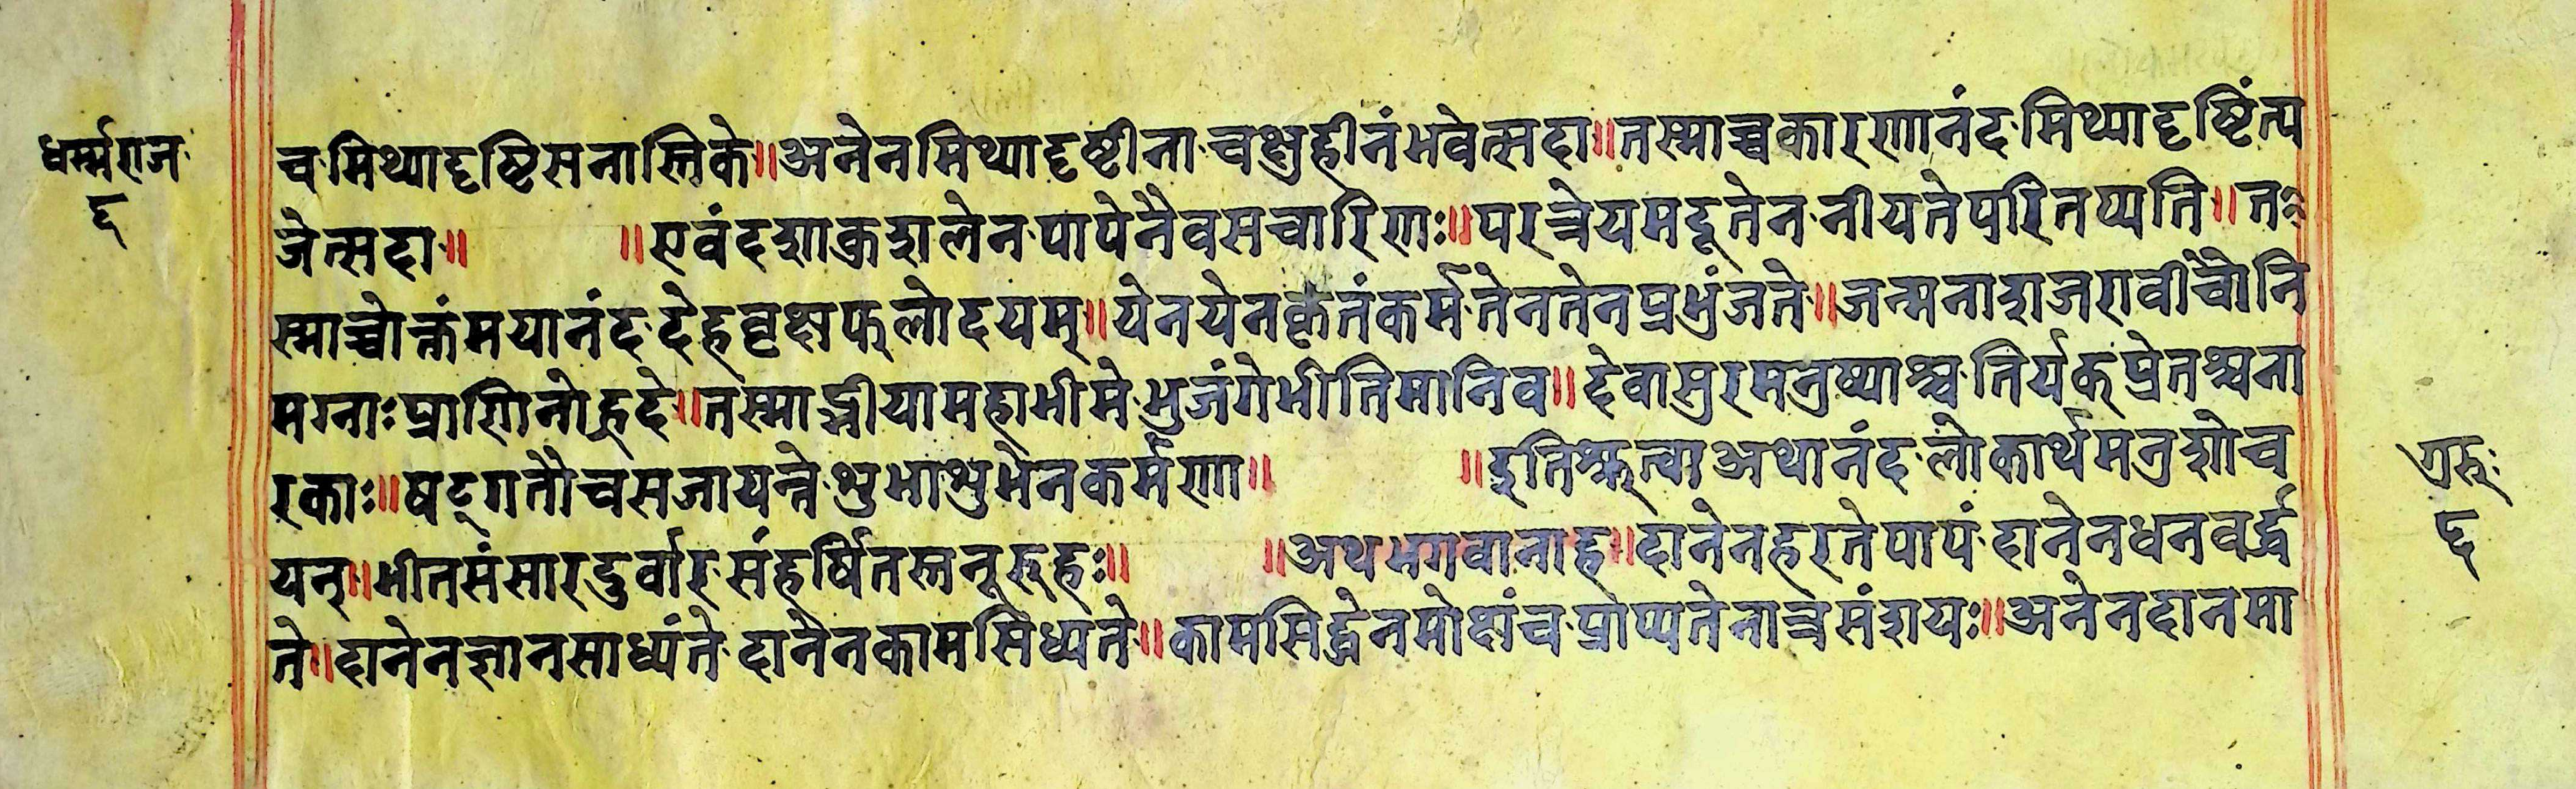 धर्म्मराज
६
च मिथ्यादृष्टिसनास्तिके॥अनेनमिथ्यादृष्टीना चक्षुहीनंभवेत्सदा॥तस्माच्चकारणानंद मिथ्यादृष्टिंत्य
जेत्सदा॥ ॥एवंदशाकुशलेन पापेनैवसचारिणः॥परत्रेयमदूतेन नीयतेपरितप्यति॥त
स्माच्चोक्तंमयानंद देहवृक्षफलोदयम्॥येनयेनकृतंकर्म तेनतेनप्रभुंजते॥जन्मनाशजरावीचौनि
मग्नाःप्राणिनोह्रदे॥तस्माद्भीयामहाभीमे भुजंगेभीतिमानिव॥देवासुरमनुष्याश्च तिर्यक्प्रेतश्चना
रकाः॥षट्गतौचसजायन्ते शुभाशुभेनकर्मणा॥ ॥इतिश्रुत्वाअथानंद लोकार्थमनुशोच
यन्॥भीतसंसारदुर्वार संहर्षितस्तनूरुहः॥ ॥अथभगवानाह॥दानेनहरतेपापं दानेनधनवर्द्ध
ते॥दानेनज्ञानसाध्यंते दानेनकामसिध्यते॥कामसिद्धेनमोक्षंच प्राप्यतेनात्रसंशयः॥अनेनदानमा
गुरुः
६